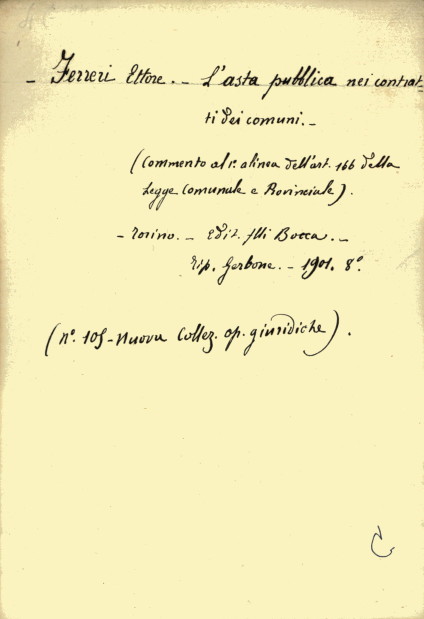 - Ferreri Ettore. - L'asta pubblica nei contrat-
ti dei comuni. -
(Commento al 1° alinea dell'art. 166 della
Legge Comunale e Provinciale).
- Torino. - Edit. flli Bocca. -
Tip. Gerbone. - 1901. 8°.
(N°. 105 - Nuova Collez. op. giuridiche).
C